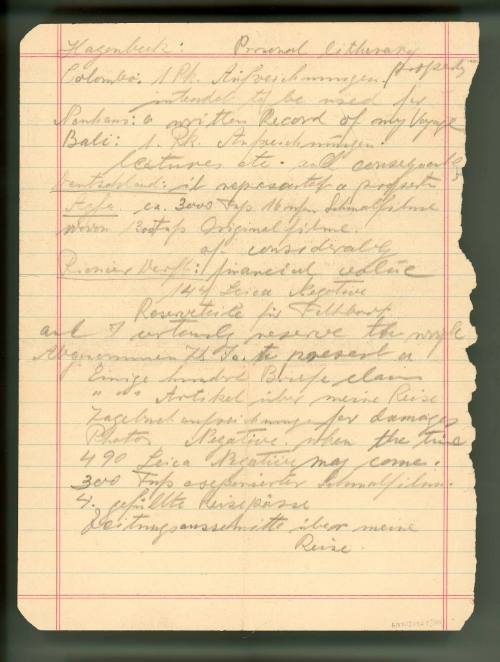 Hagenbeck: Personal litherary
property
Colombo: 1 Pk. Aufzeichnungen.
intended to be used for
Neuhaus: a written Record of my Voyage
Bali: 1. Pk. Aufzeichnungen.
lectures etc. and consequently
Deutschland: it represented a property
Agfa ca. 3000 Fuß 16 m/m Schmalfilme
wovon 200 Fuß Originalfilme.
of considerably
financial value
144 Leica Negative
Reserveteile für Faltboot
and I certainly reserve the right
Abgenommen to present a
Einige hundert Briefe claim
" " " Artikel über meine Reise
Tagebuchaufzeichnungen for damages
Photos Negative. when the time
490 Leica Negative may come.
300 Fuß Schmalfilm.
4. gefüllte Reisepässe
Zeitungsausschnitte über meine
Reise.